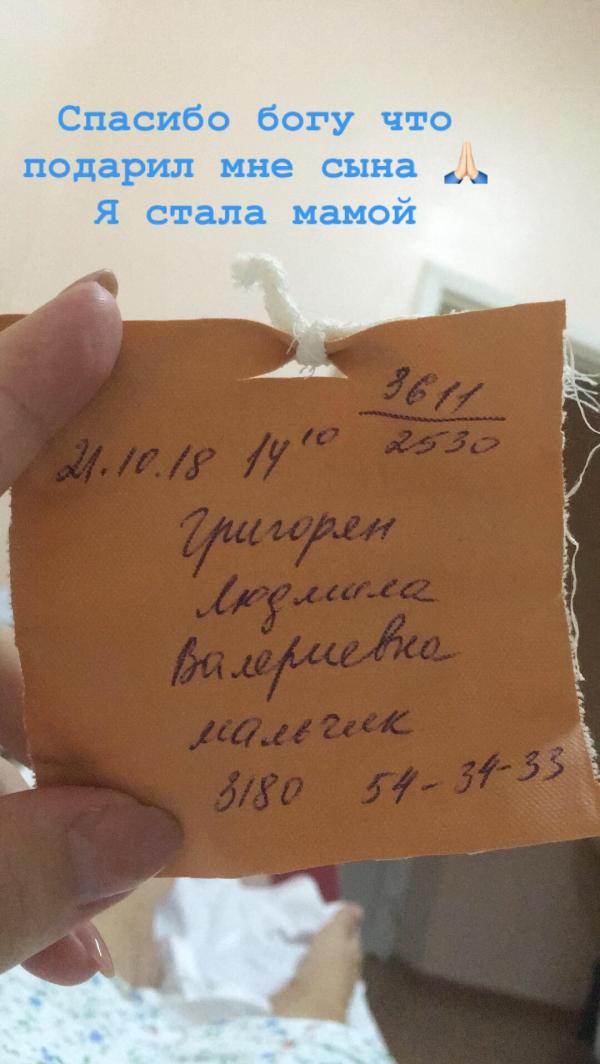 Спасибо богу что
подарил мне сына 🙏🏻
Я стала мамой
3611
2530
21.10.18 14¹⁰
Григорян
Людмила
Валериевна
мальчик
3180 54-34-33